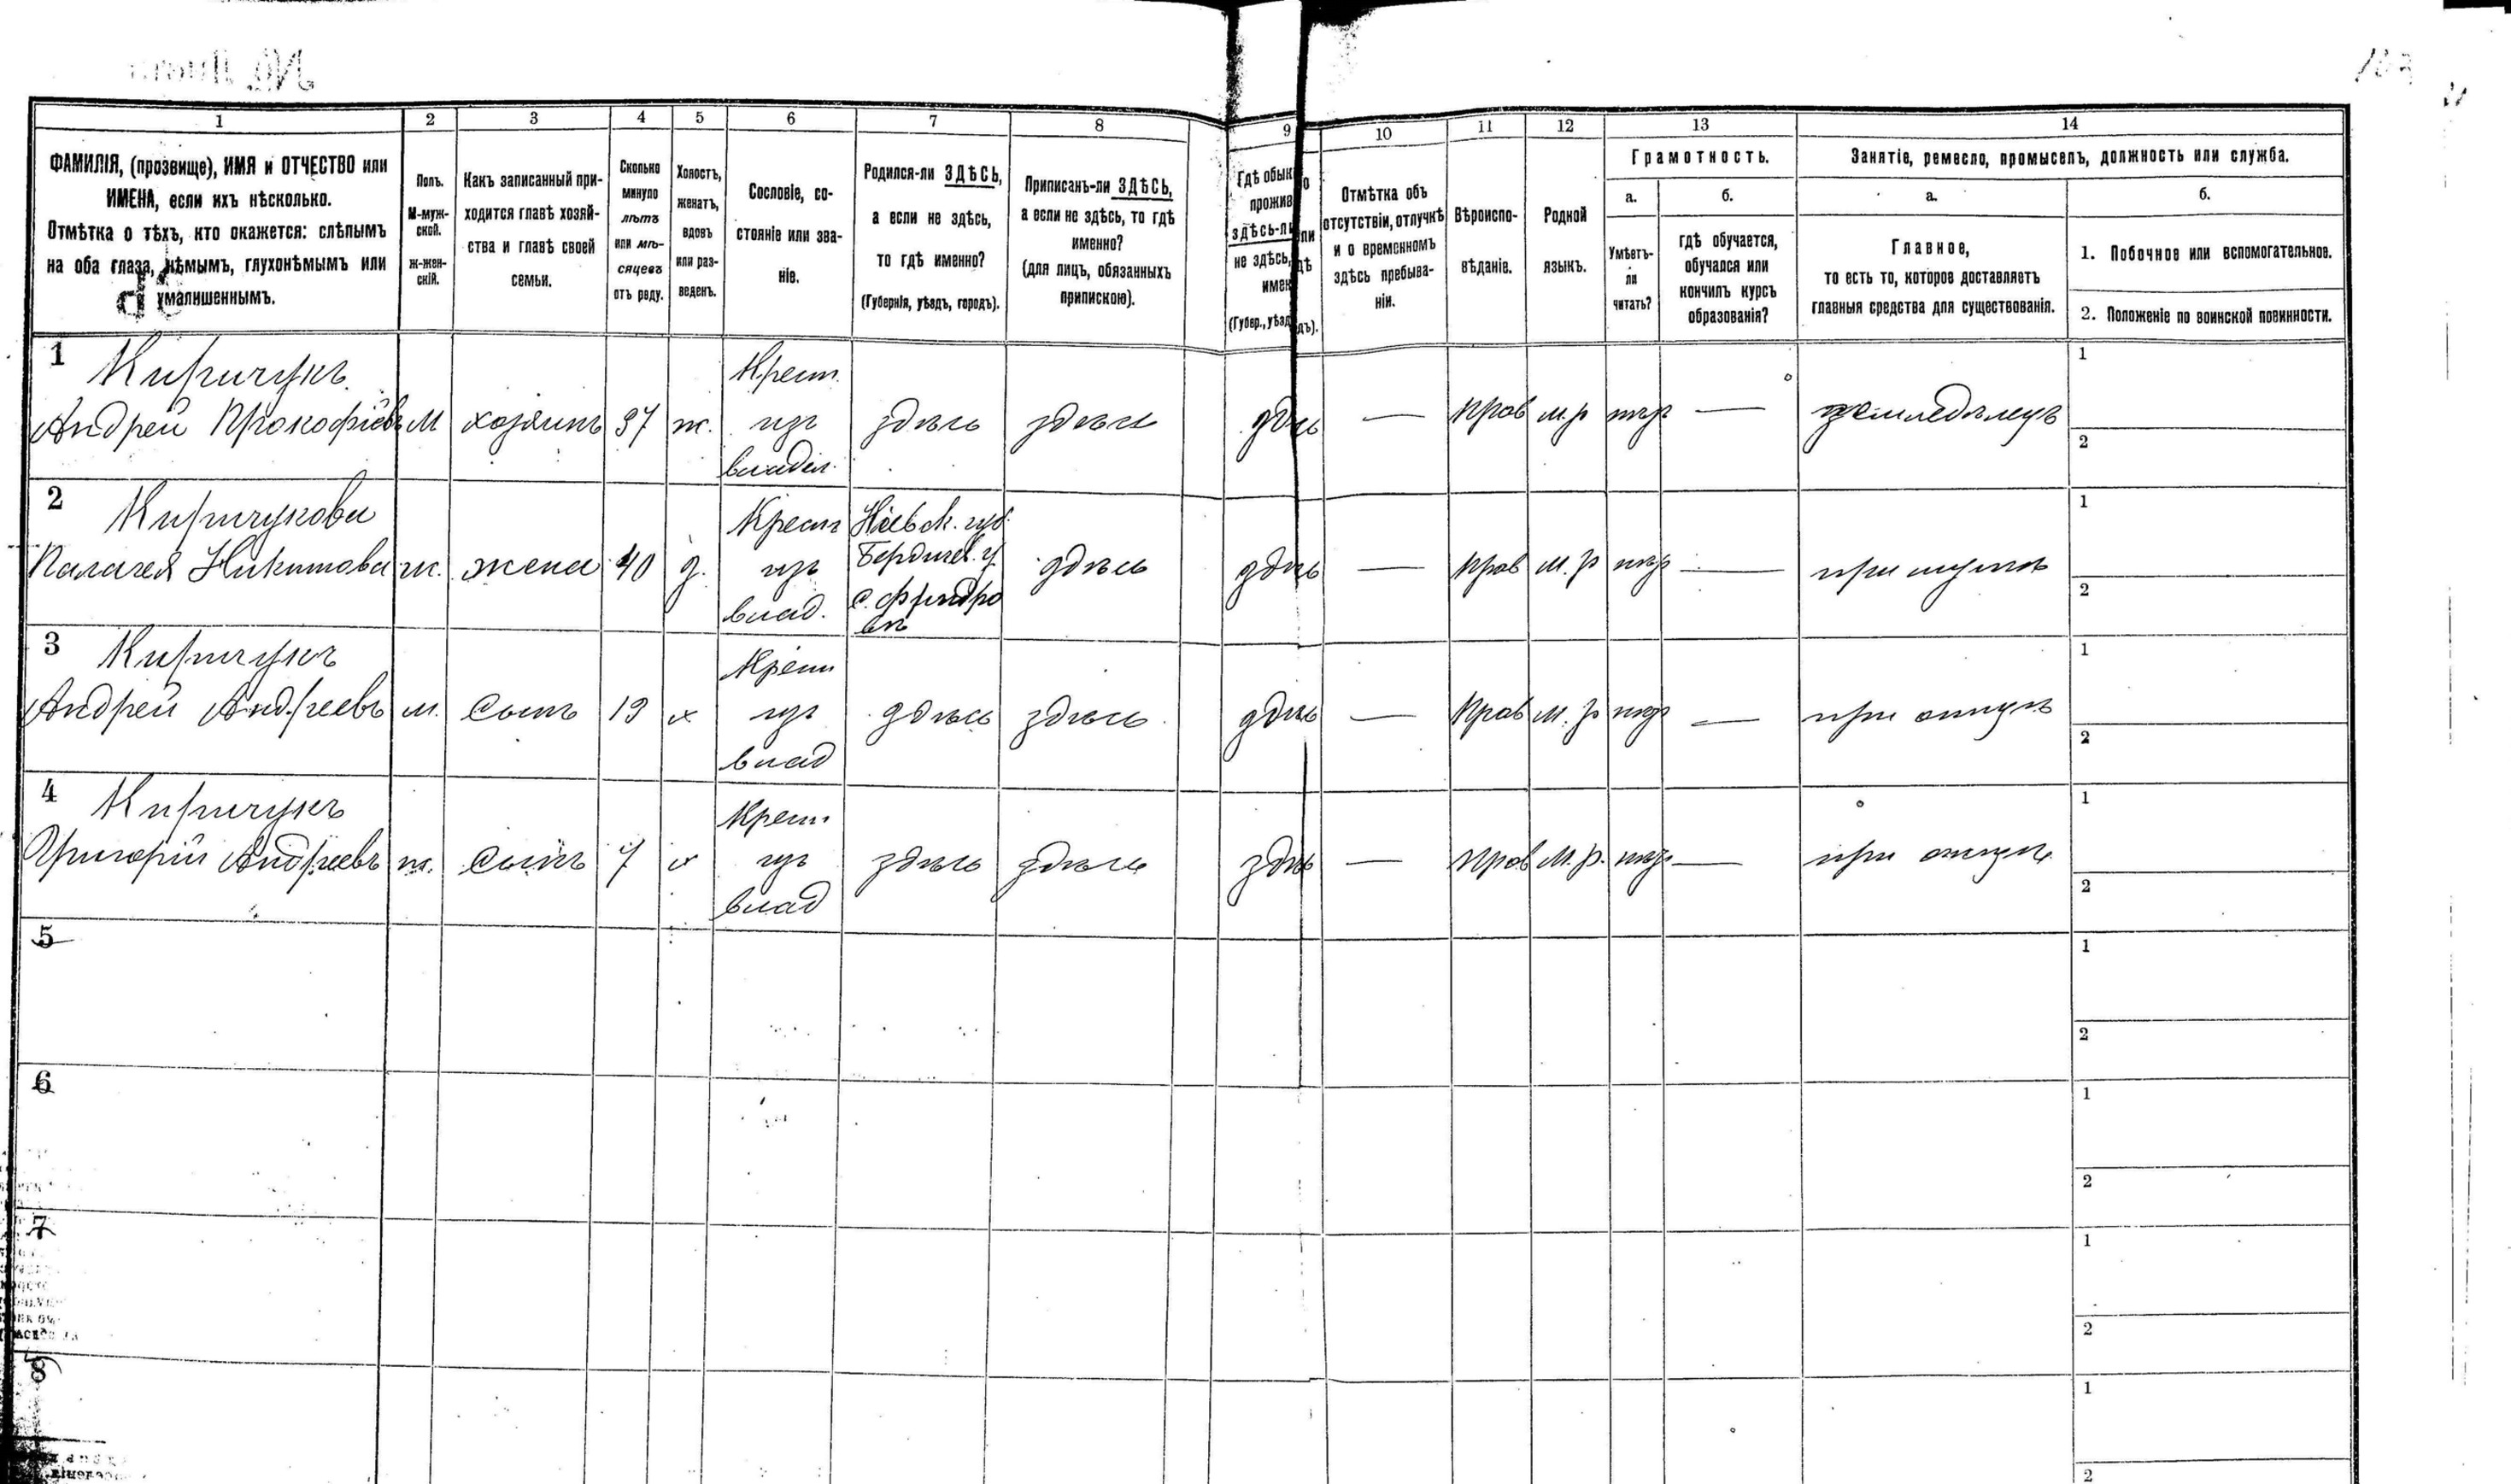 1 2 3 4 5 6 7 8 9 10 11 12 13 14
ФАМИЛІЯ, (прозвище), ИМЯ и ОТЧЕСТВО или
ИМЕНА, если ихъ нѣсколько.
Отмѣтка о тѣхъ, кто окажется: слѣпымъ
на оба глаза, нѣмымъ, глухонѣмымъ или
умалишеннымъ.
Полъ.
М-муж-
ской.
Ж-жен-
скій.
Какъ записанный при-
ходится главѣ хозяй-
ства и главѣ своей
семьи.
Сколько
минуло
лѣтъ
или мѣ-
сяцевъ
отъ роду.
Холостъ,
женатъ,
вдовъ
или раз-
веденъ.
Сословіе, со-
стояніе или зва-
ніе.
Родился-ли ЗДѢСЬ,
а если не здѣсь,
то гдѣ именно?
(Губернія, уѣздъ, городъ).
Приписанъ-ли ЗДѢСЬ,
а если не здѣсь, то гдѣ
именно?
(для лицъ, обязанныхъ
припискою).
Гдѣ обык
прожив
здѣсь-ли
не здѣсь,
имен
(Губер., уѣзд
Отмѣтка объ
отсутствіи, отлучкѣ
и о временномъ
здѣсь пребыва-
ніи.
Вѣроиспо-
вѣданіе.
Родной
языкъ.
Грамотность.
а.
Умѣетъ-
ли
читать?
б.
гдѣ обучается,
обучался или
кончилъ курсъ
образованія?
Занятіе, ремесло, промыселъ, должность или служба.
а.
Главное,
то есть то, которое доставляетъ
главныя средства для существованія.
б.
1. Побочное или вспомогательное.
2. Положеніе по воинской повинности.
1 Киричукъ Крест. 1
Андрей Прокофіевъ М хозяинъ 37 ж. изъ здѣсь здѣсь здѣсь — прав м.р — земледѣлецъ
владѣл. 2
2 Киричукова Крест Кіевск. губ. 1
Палагея Никитова ж. жена 40 з. изъ Бердичев. у здѣсь здѣсь — прав м.р —
влад. с. 2
3 Киричукъ Крест 1
Андрей Андреевъ м. сынъ 19 х изъ здѣсь здѣсь здѣсь — прав м.р — при отцѣ
влад 2
4 Киричукъ Крест 1
Григорій Андреевъ м. сынъ 7 х изъ здѣсь здѣсь здѣсь — прав м.р. — при отцѣ
влад 2
5 1
2
6 1
2
7 1
2
8 1
2